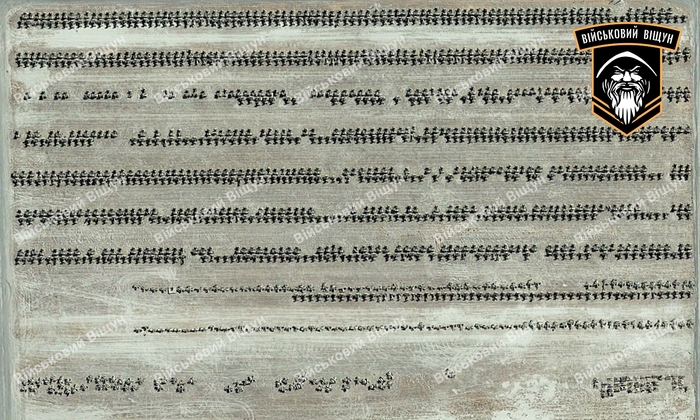 ВІЙСЬКОВИЙ ВІЩУН